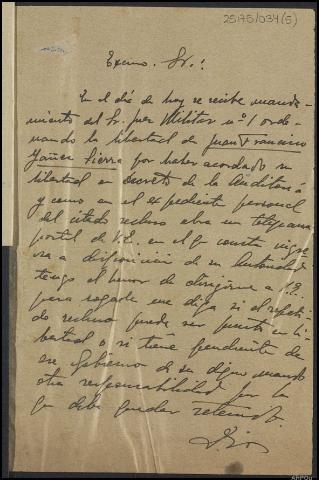 25175/034(5)
Excmo. Sr.:
En el día de hoy se recibe manda-
miento del Sr. Juez Militar nº 1 orde-
nando la libertad de Juan Francisco
Yañez Sierra por haber acordado su
libertad en decreto de la Auditoría
y como en el expediente personal
del citado recluso obra un telegrama
postal de V.E. en el q consta ingre
sa a disposición de su Autoridad
tengo el honor de dirigirme a V.E.
para rogarle me diga si el repeti-
do recluso puede ser puesto en li-
bertad o si tiene pendiente de
ese Gobierno de su digno mando
otra responsabilidad por la
que deba quedar retenido.
Dios